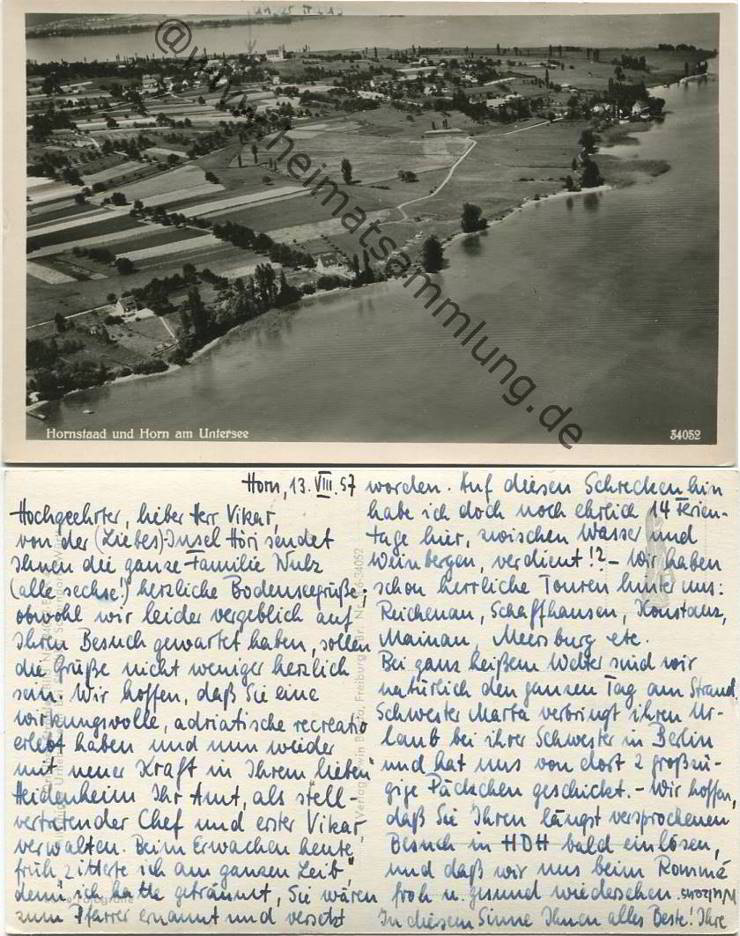 @www.heimatsammlung.de
Hornstaad und Horn am Untersee
34052
Horn, 13. VIII. 57
Hochgeehrter, lieber Herr Vikar,
von der (Liebes)-Insel Höri sendet
Ihnen die ganze Familie Nubz
(alle sechse!) herzliche Bodenseegrüße;
obwohl wir leider vergeblich auf
Ihren Besuch gewartet haben, sollen
die Grüße nicht weniger herzlich
sein. Wir hoffen, daß Sie eine
wirkungsvolle, adriatische recreatio
erlebt haben und nun wieder
mit neuer Kraft in Ihrem lieben
Heidenheim Ihr Amt, als stell-
vertretender Chef und erster Vikar,
verwalten. Beim Erwachen heute
früh zitterte ich am ganzen Leib,
denn ich hatte geträumt, Sie wären
zum Pfarrer ernannt und versetzt
worden. Auf diesen Schrecken hin
habe ich doch noch ehrlich 14 Ferien-
tage hier, zwischen Wasser und
Weinbergen, verdient!? - Wir haben
schon herrliche Touren hinter uns:
Reichenau, Schaffhausen, Konstanz,
Mainau, Meersburg etc.
Bei ganz heißem Wetter sind wir
natürlich den ganzen Tag am Strand.
Schwester Marta verbringt ihren Ur-
laub bei ihrer Schwester in Berlin
und hat uns von dort 2 großzü-
gige Päckchen geschickt. - Wir hoffen,
daß Sie Ihren längst versprochenen
Besuch in HDH bald einlösen,
und daß wir uns beim Rommé
froh u. gesund wiedersehen.
In diesem Sinne Ihnen alles Beste! Ihre